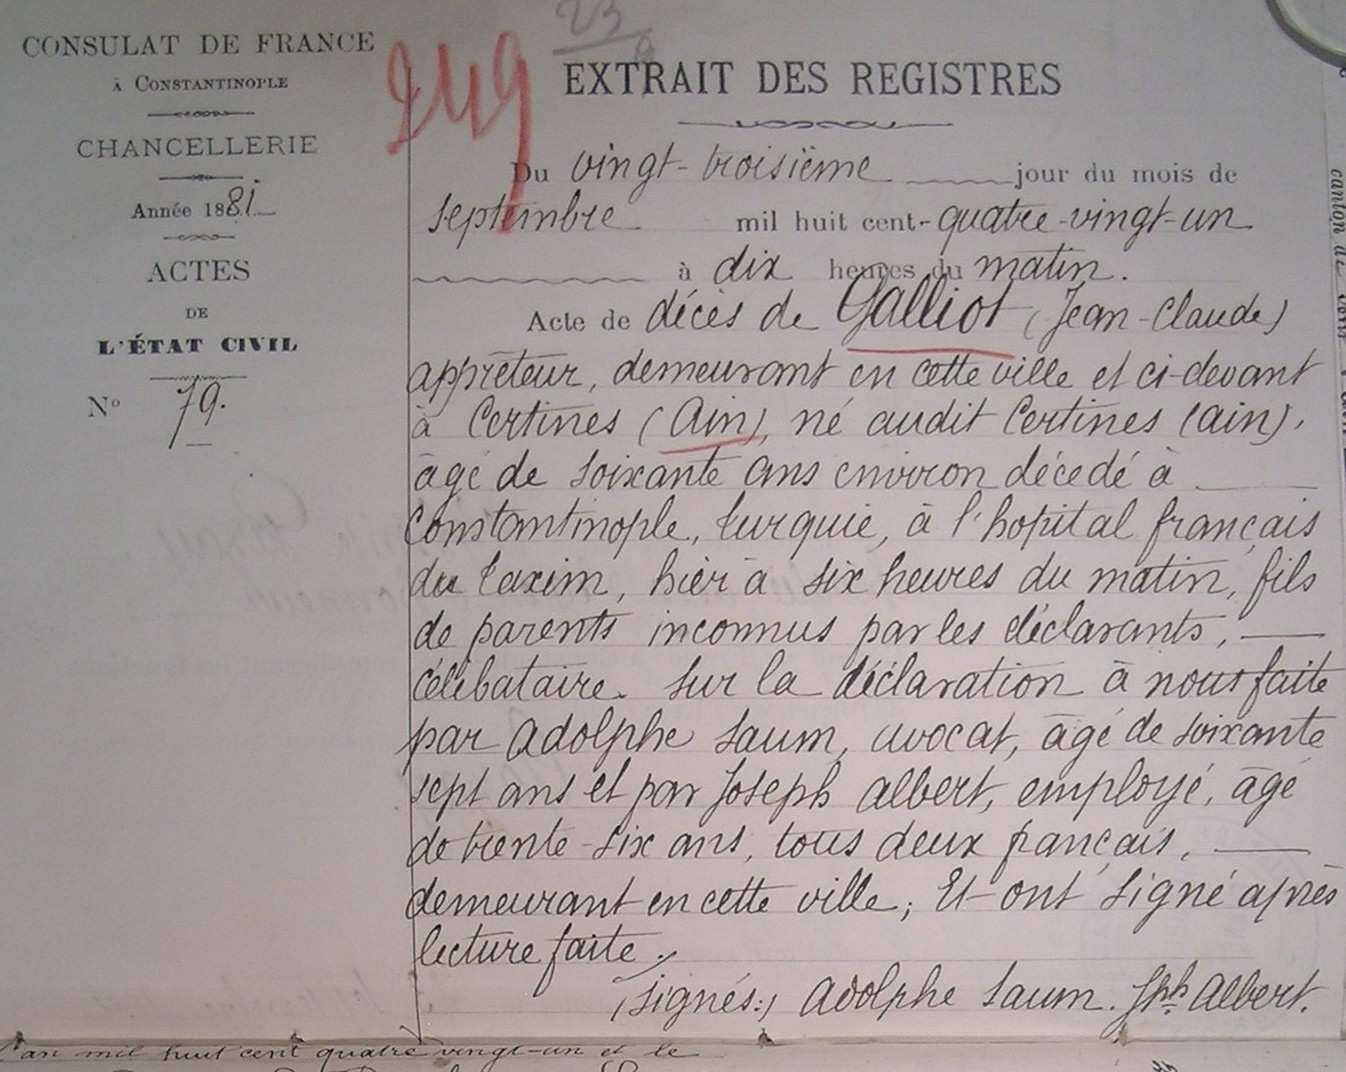 CONSULAT DE FRANCE
à CONSTANTINOPLE
CHANCELLERIE
Année 1881
ACTES
DE
L'ÉTAT CIVIL
N° 79.
249
23
9
EXTRAIT DES REGISTRES
Du vingt-troisième jour du mois de
septembre mil huit cent-quatre-vingt-un
à dix heures du matin.
Acte de décès de Galliot (Jean-Claude)
apprêteur, demeurant en cette ville et ci-devant
à Certines (Ain), né audit Certines (ain),
âgé de soixante ans environ décédé à
Constantinople, turquie, à l'hopital français
du taxim, hier à six heures du matin, fils
de parents inconnus par les déclarants,
célibataire. Sur la déclaration à nous faite
par Adolphe Saum, avocat, âgé de soixante
sept ans et par Joseph Albert, employé, âgé
de trente-six ans, tous deux français,
demeurant en cette ville; Et ont signé après
lecture faite.
(signés:) Adolphe Saum. Jph Albert.
L'an mil huit cent quatre vingt-un et le
canton de